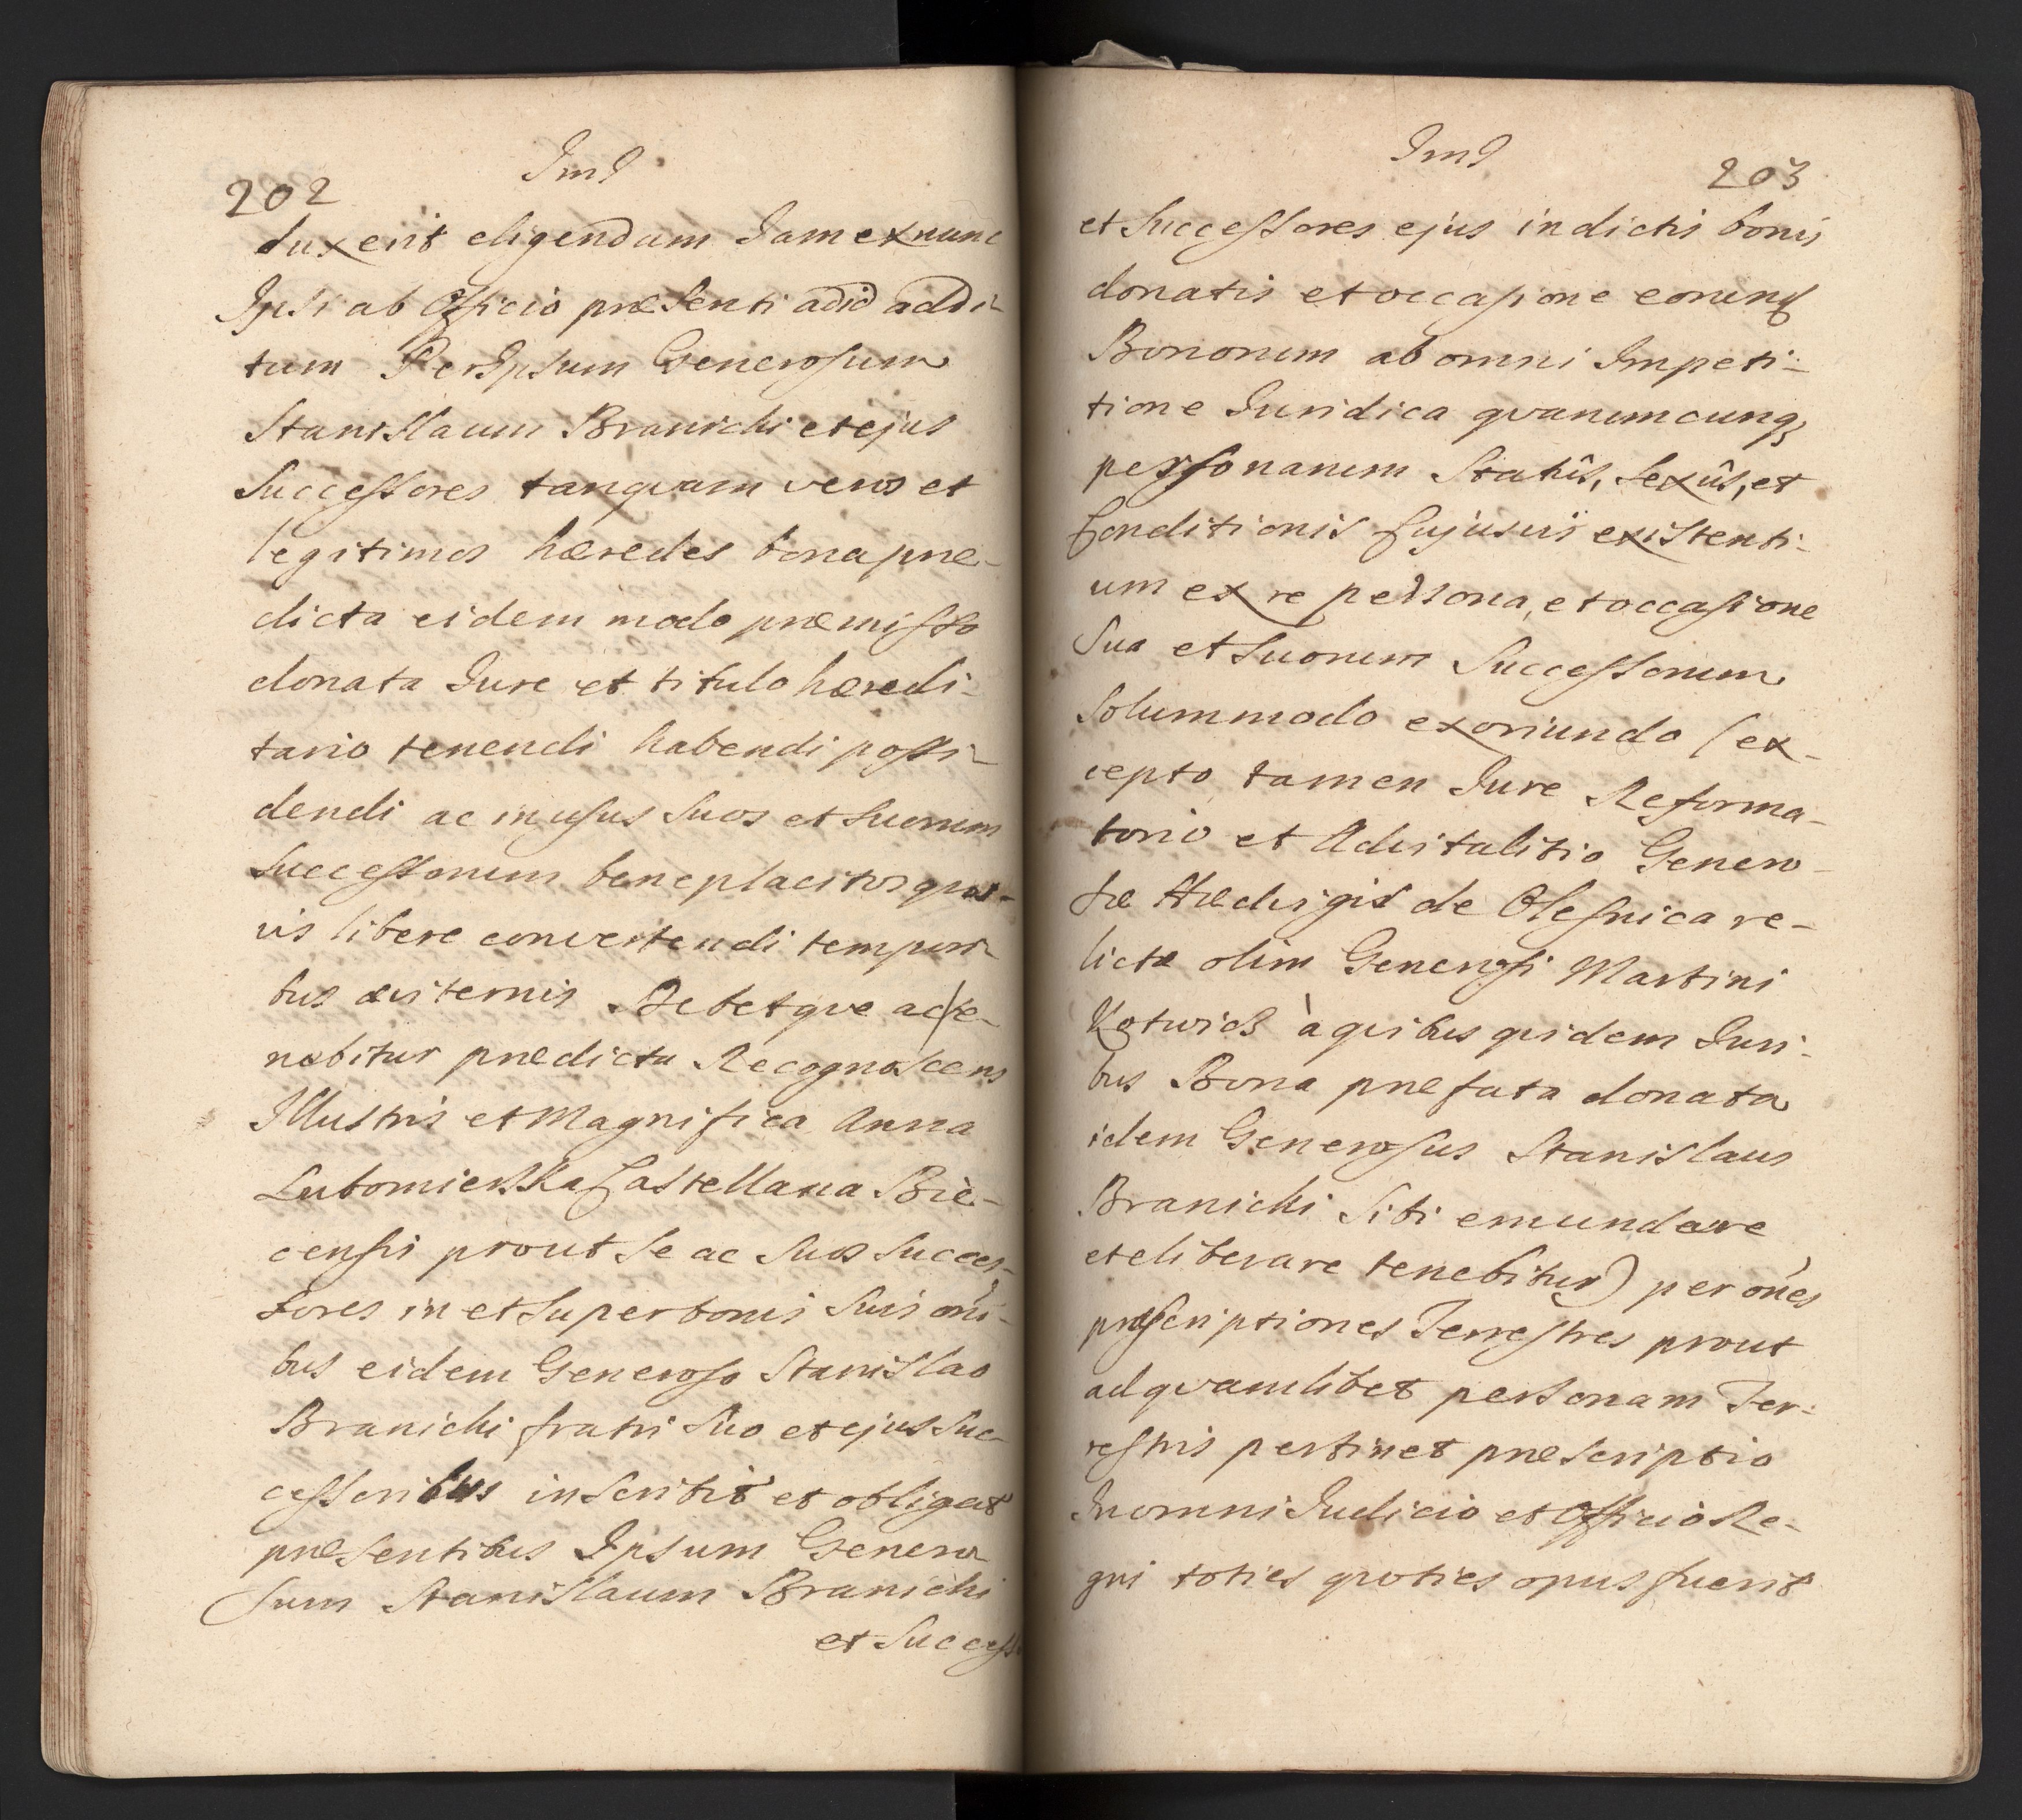 202
ImI
duxerit eligendum Iam ex nunc
Ipsi ab Officio præsenti ad id addi-
tum Per Ipsum Generosum
Stanislaum Branicki et ejus
Successores tanquam veros et
legitimos hæredes bona præ-
dicta eidem modo præmisso
donata Iure et titulo hæredi-
tario tenendi habendi possi-
dendi ac in usus suos et suorum
Successorum beneplacitos quos-
vis libere convertendi tempori-
bus æviternis. Debetque ac te-
nebitur prædicta Recognoscens
Illustris et Magnifica Anna
Lubomierska Castellana Bie-
censis prout se ac suos succes-
sores in et super bonis suis oni-
bus eidem Generoso Stanislao
Branicki fratri suo et ejus suc-
cessoribus inscribit et obligat
præsentibus Ipsum Genero-
sum Stanislaum Branicki
et Success
ImI
203
et Successores ejus in dictis bonis
donatis et occasione eorund
Bonorum ab omni Impeti-
tione Iuridica quarumcunq
personarum Statûs, Sexûs, et
Conditionis Cujusvis existenti-
um ex re persona, et occasione
Sua et Suorum Successorum
Solummodo exoriundo (ex-
cepto tamen Iure Reforma-
torio et Advitalitio Genero-
sæ Hædvigis de Olesnica re-
lictæ olim Generosi Martini
Kotwicz à quibus quidem Iuri-
bus Bona præfata donata
idem Generosus Stanislaus
Branicki sibi emundare
et eliberare tenebitur) per ones
præscriptiones Terrestres prout
ad quamlibet personam Ter-
restris pertinet præscriptio
In omni Iudicio et Officio Re-
gni toties quoties opus fuerit